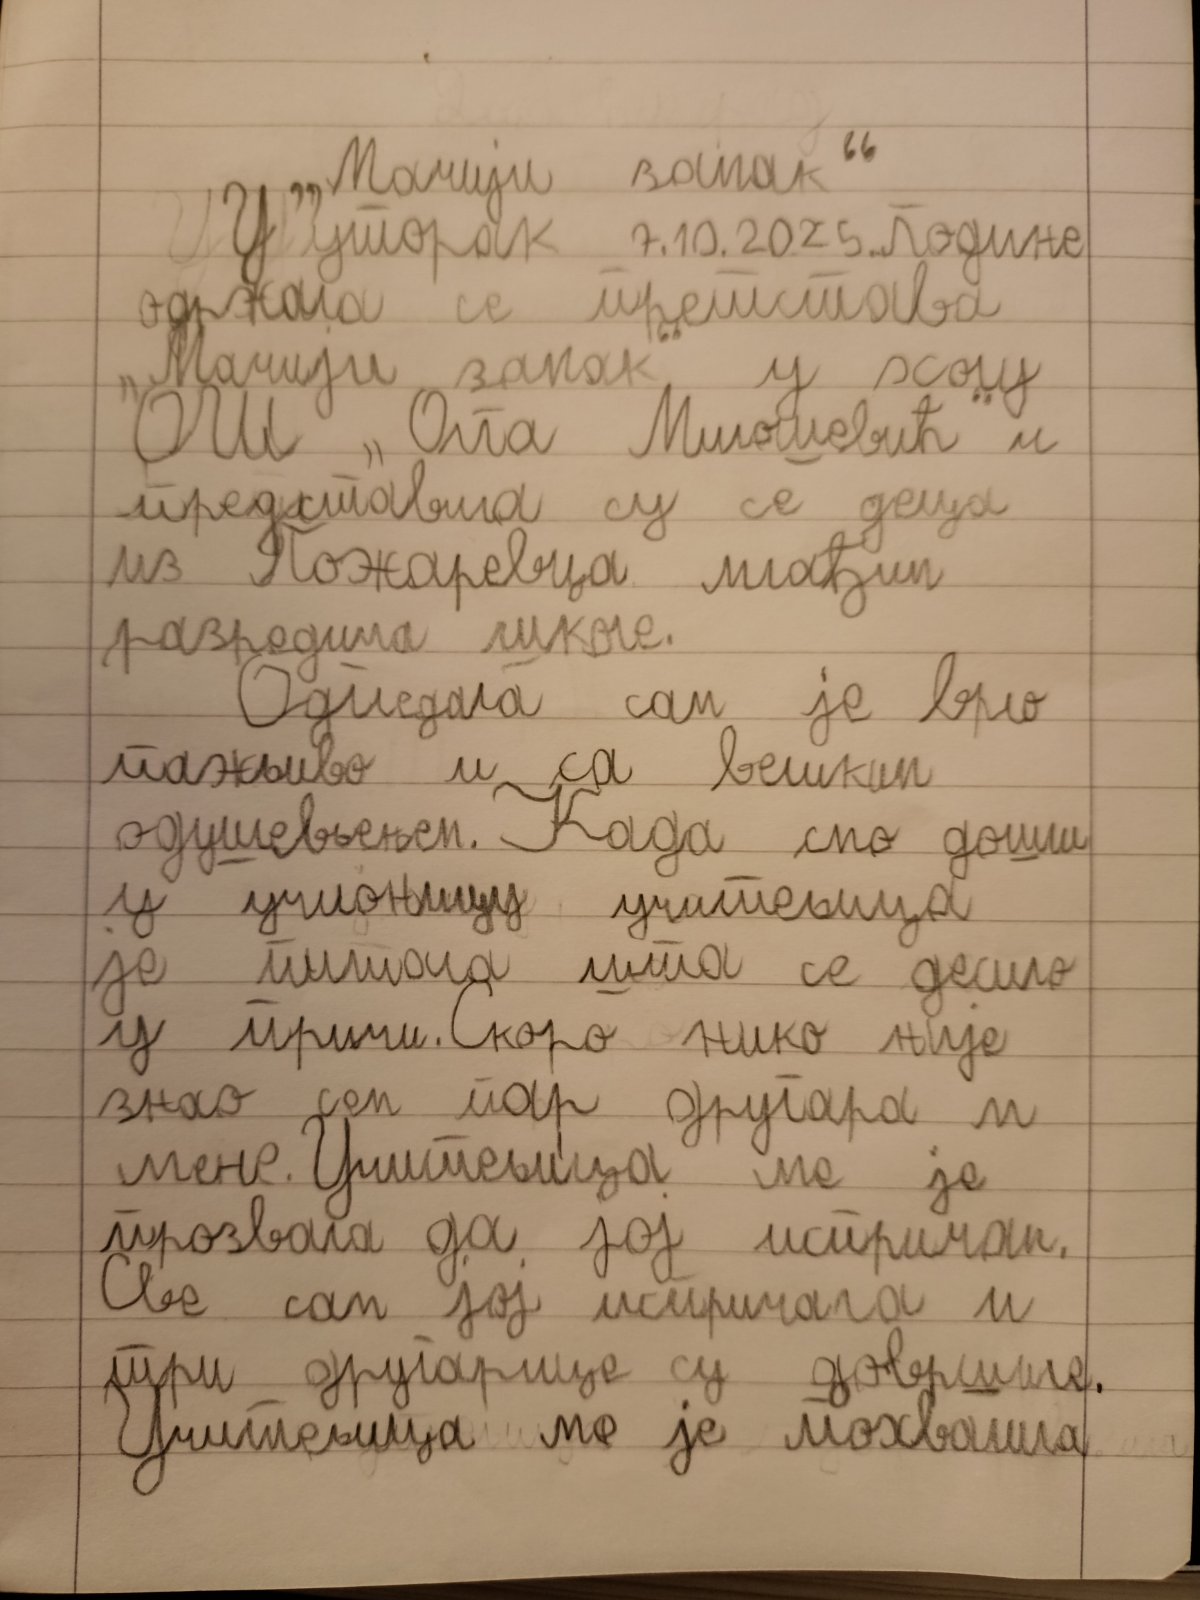 „Мачији запак“
У уторак 7.10.2025. године
одржала се претстава
„Мачији запак“ у холу
ОШ „Ола Милошевић“ и
представила су се деца
из Пожаревца млађим
разредима школе.
Одгледала сам је врло
пажљиво и са великим
одушевљењем. Када смо дошли
у учионицу учитељица
је питала шта се десило
у причи. Скоро нико није
знао сем пар другара и
мене. Учитељица ме је
прозвала да јој испричам.
Све сам јој испричала и
три другарице су довршиле.
Учитељица ме је похвалила